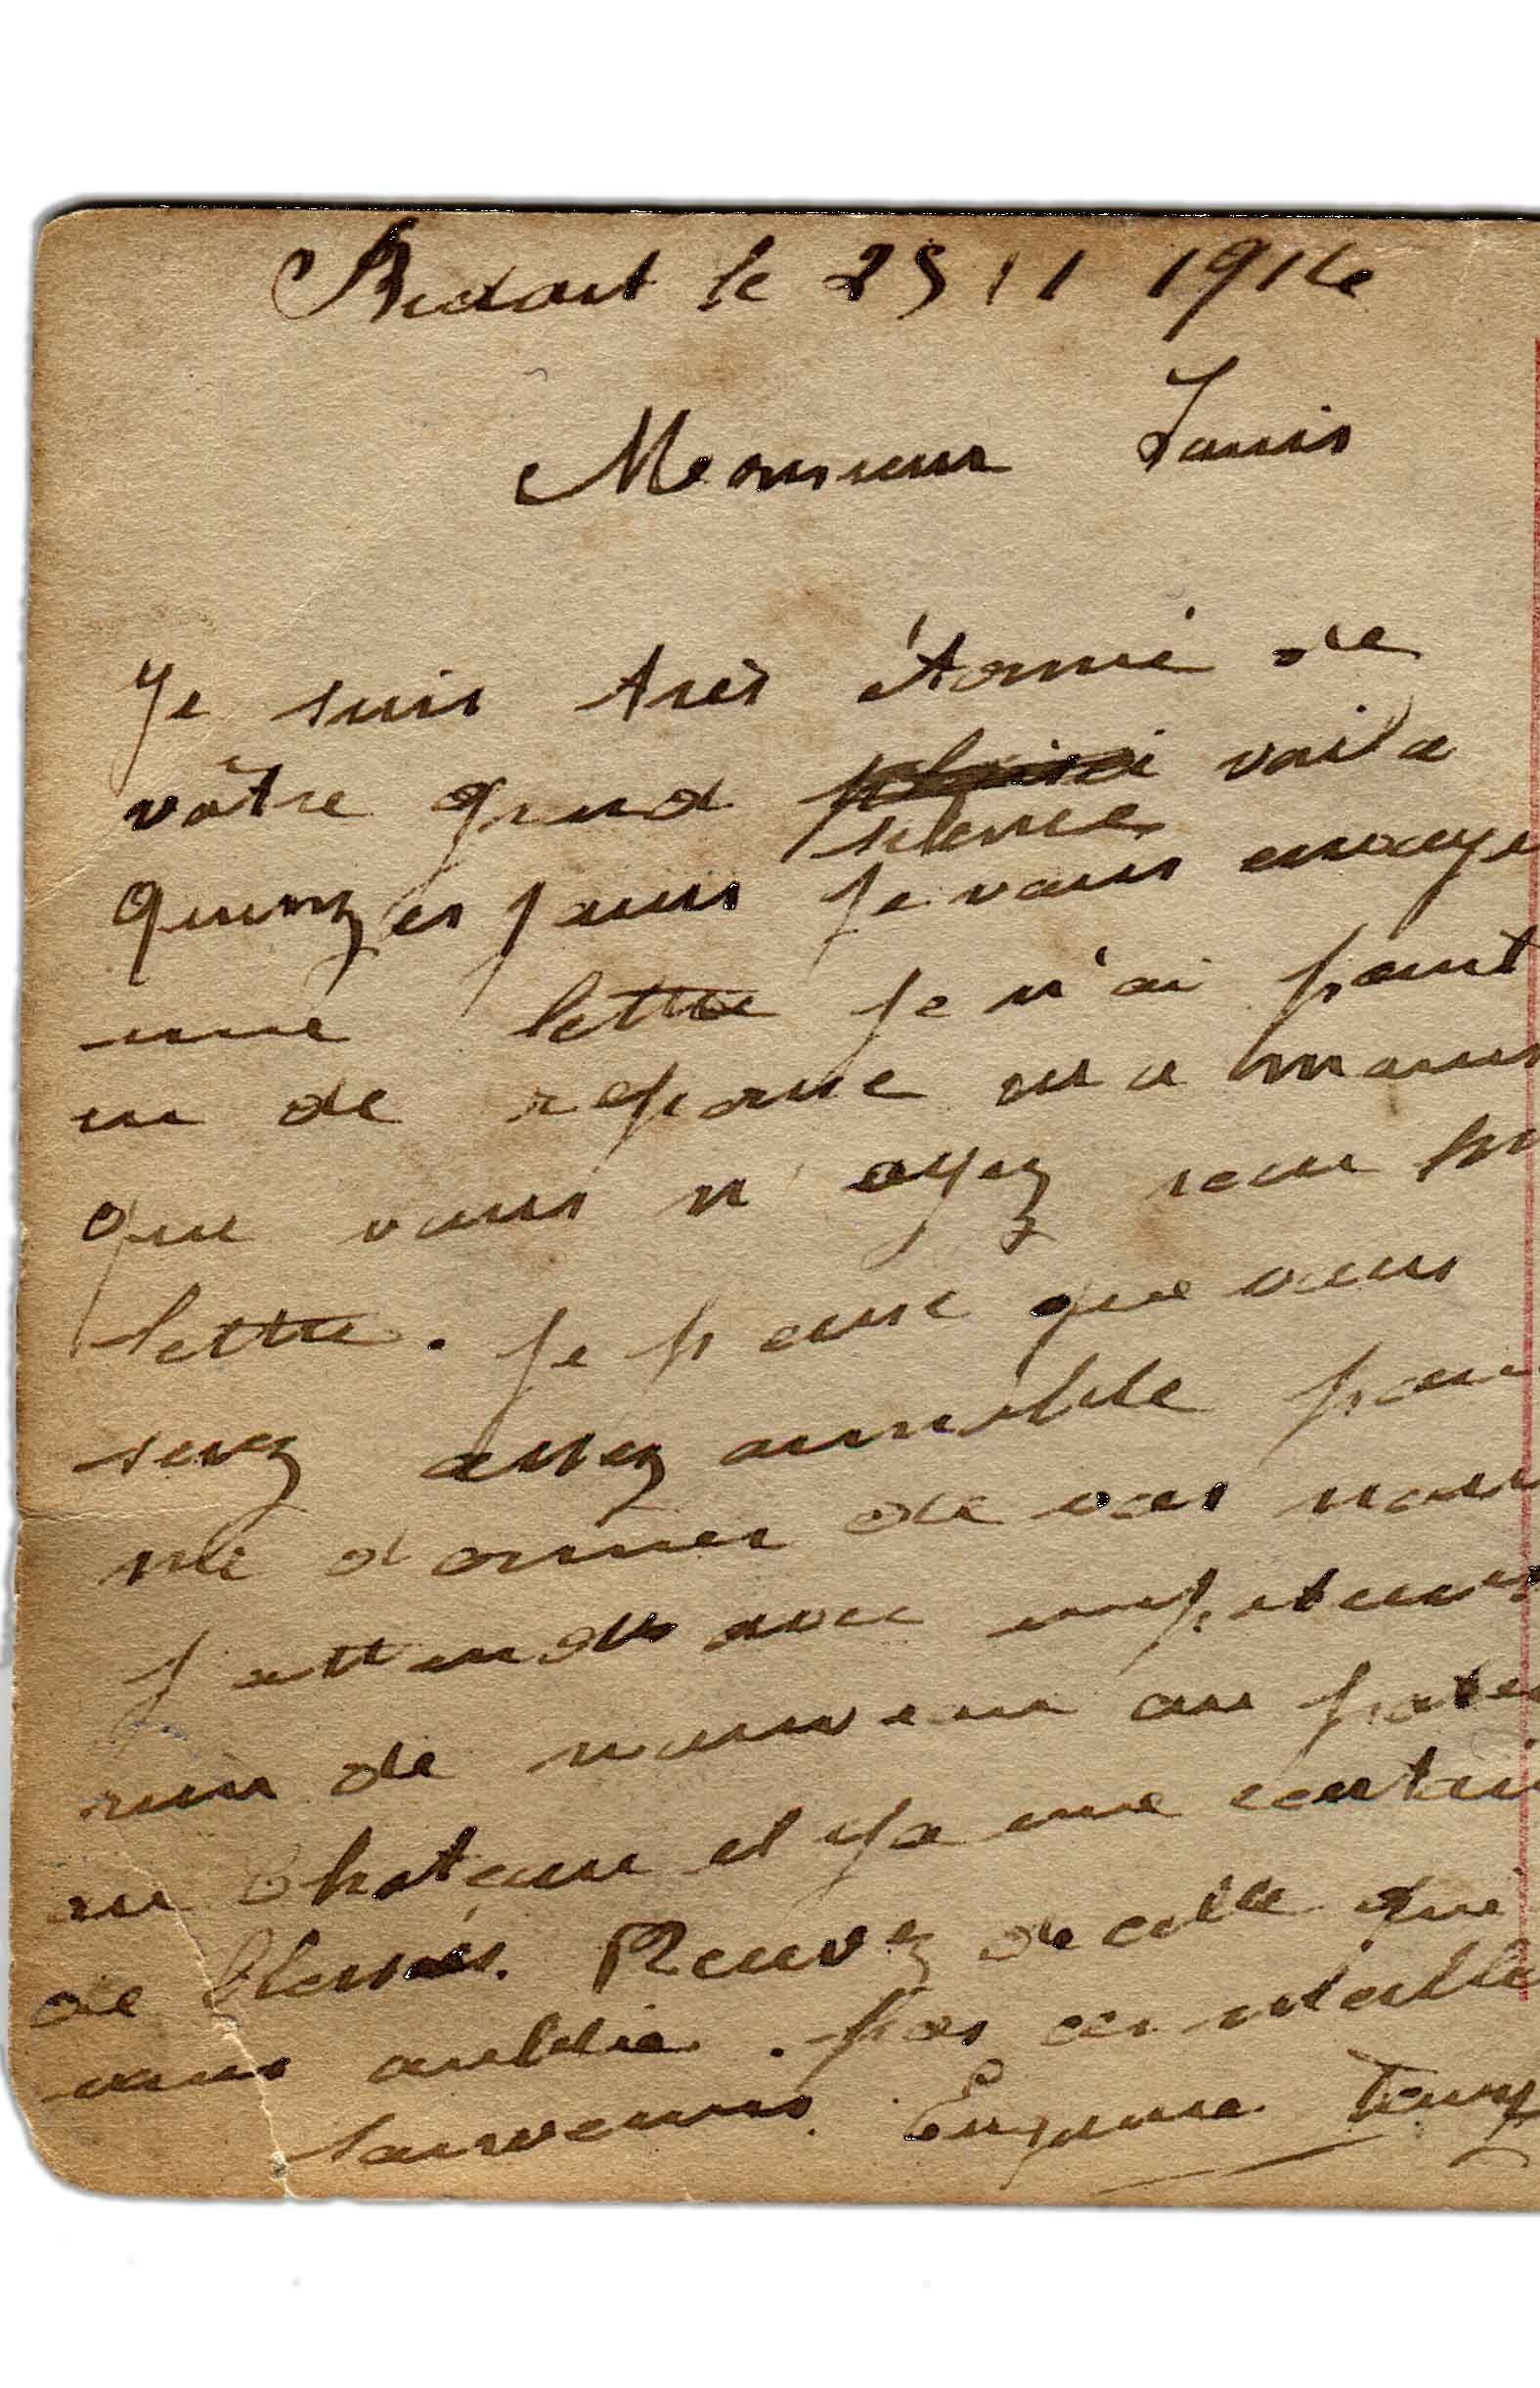 Bidart le 25 11 1914
Monsieur Louis
Je suis très étonné de
vôtre grand silence voila
quinzes jours je vous envoye
une lettre je n'ai point
eu de reponse ou a moins
que vous n'ayez recu m
lettre. Je pense que vous
serez assez aimable pour
me donner de vos nouv
j attends avec impatience
rien de nouveau au pate
au Chateau et ya une certai
de blessés. Recevez de celle que
vous oublie. pas ces meille
souvenirs. Eugenie